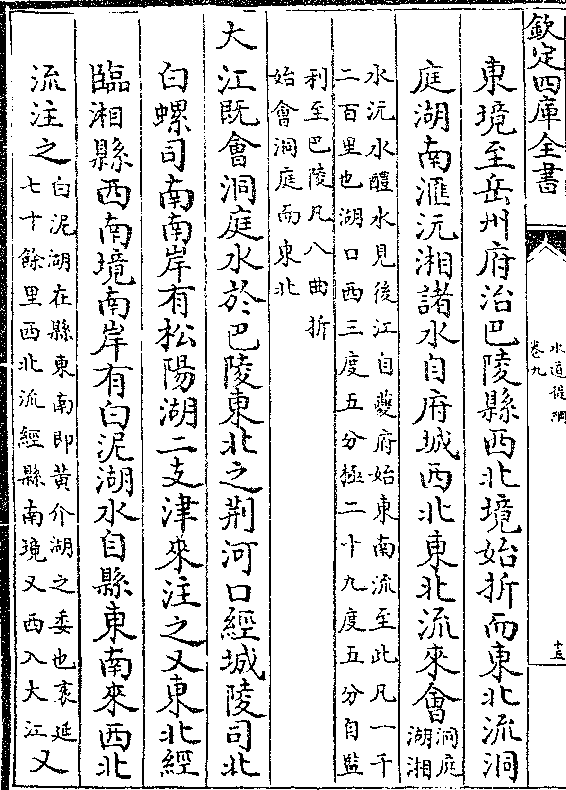 欽定四庫全書
水道提綱
卷九
十五
東境至岳州府治巴陵縣西北境始折而東北流洞
庭湖南滙沅湘諸水自府城西北東北流來會洞庭
湖湘
水沅水醴水見後江自夔府始東南流至此凡一千
二百里也湖口西三度五分極二十九度五分自監
利至巴陵凡八曲折
始會洞庭而東北
大江既會洞庭水於巴陵東北之荆河口經城陵司北
白螺司南南岸有松陽湖二支津來注之又東北經
臨湘縣西南境南岸有白泥湖水自縣東南來西北
流注之白泥湖在縣東南即黃介湖之委也袤延
七十餘里西北流經縣南境又西入大江又